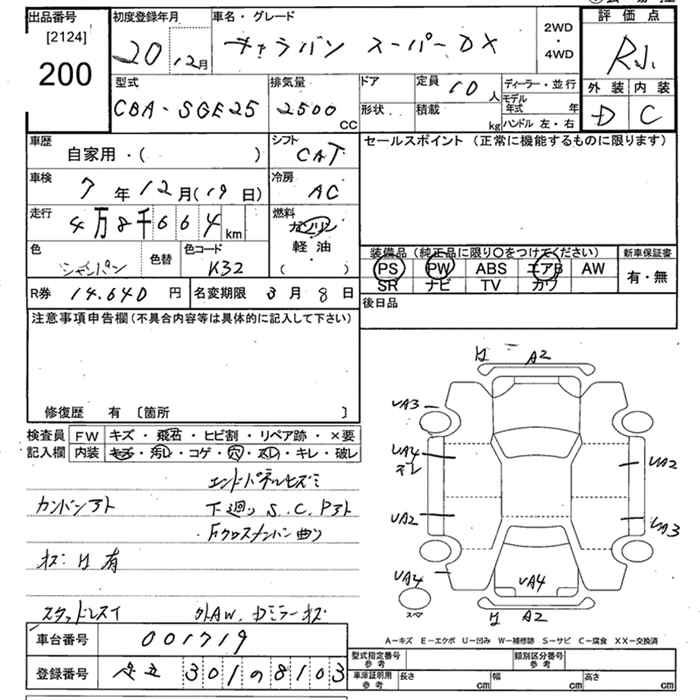 出品番号 初度登録年月 車名・グレード 評価点
[2124] 20年12月 キャラバン スーパーDX 2WD・4WD
200
型式 排気量 ドア 定員 10人 ディーラー・並行 外装 内装
CBA-SGE25 2500cc 形状 積載 kg モデル年式 年 D C
ハンドル 左・右
車歴 シフト セールスポイント(正常に機能するものに限ります)
自家用・( ) CAT
車検 7年12月(19日) 冷房 AC
走行 4万8千664km 燃料 ガソリン
軽油
( )
色 シャンパン 色替 色コード K32
装備品(純正品に限り○をつけてください) 新車保証書
PS PW ABS エアB AW 有・無
SR ナビ TV カワ
R券 14.640円 名変期限 3月8日 後日品
注意事項申告欄(不具合内容等は具体的に記入して下さい)
修復歴 有 [箇所 ]
検査員 FW キズ・飛石・ヒビ割・リペア跡・×要
記入欄 内装 キズ・汚レ・コゲ・穴・スレ・キレ・破レ
カンバンアト 下廻り S.C.Pアト
Fクロスメンバー曲り
スタッドレス
A2
UA3
UA4
UA2
UA2
UA3
UA4
UA4
A2
A-キズ E-エクボ U-凹み W-補修跡 S-サビ C-腐食 XX-交換済
車台番号 001719
登録番号 足立 301 の 8103
型式指定番号 参考 類別区分番号 参考
車庫証明用 参考 長さ cm 幅 cm 高さ cm